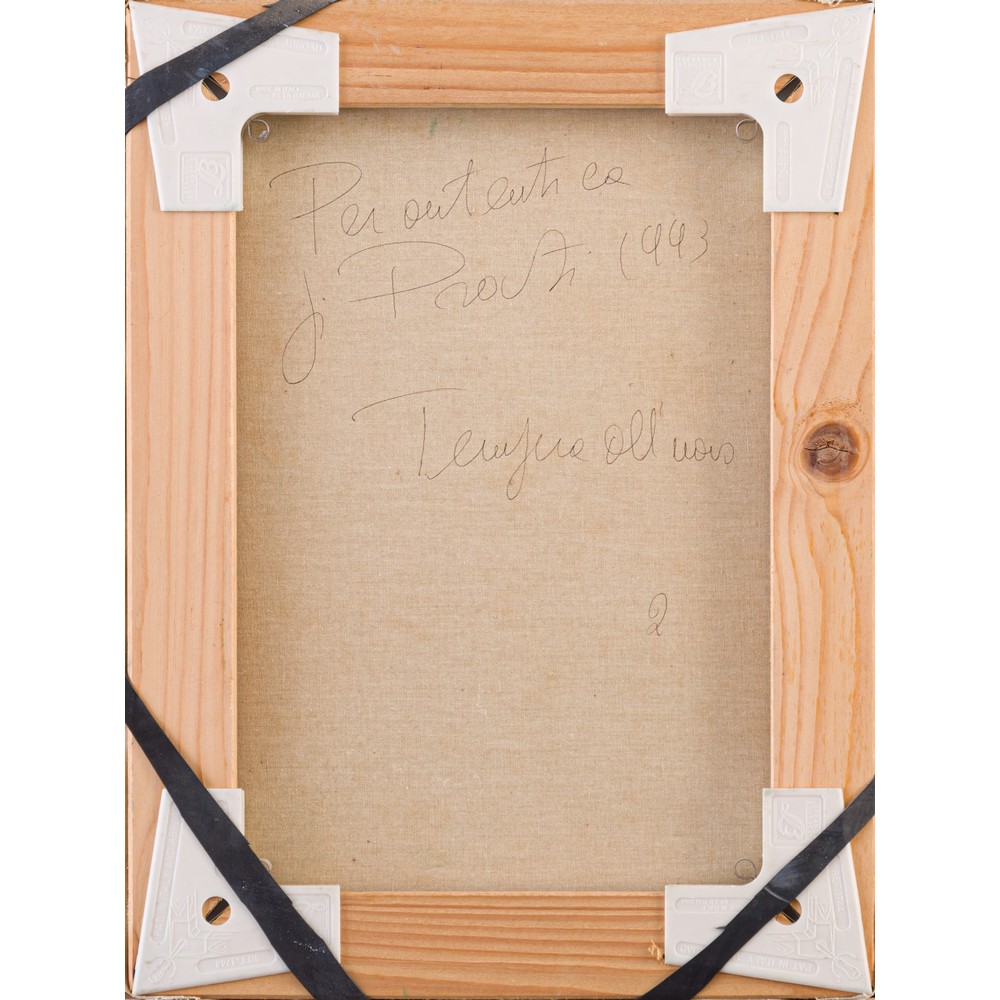 Per autentica
J. Provti 1993
Tempera all'uovo
2